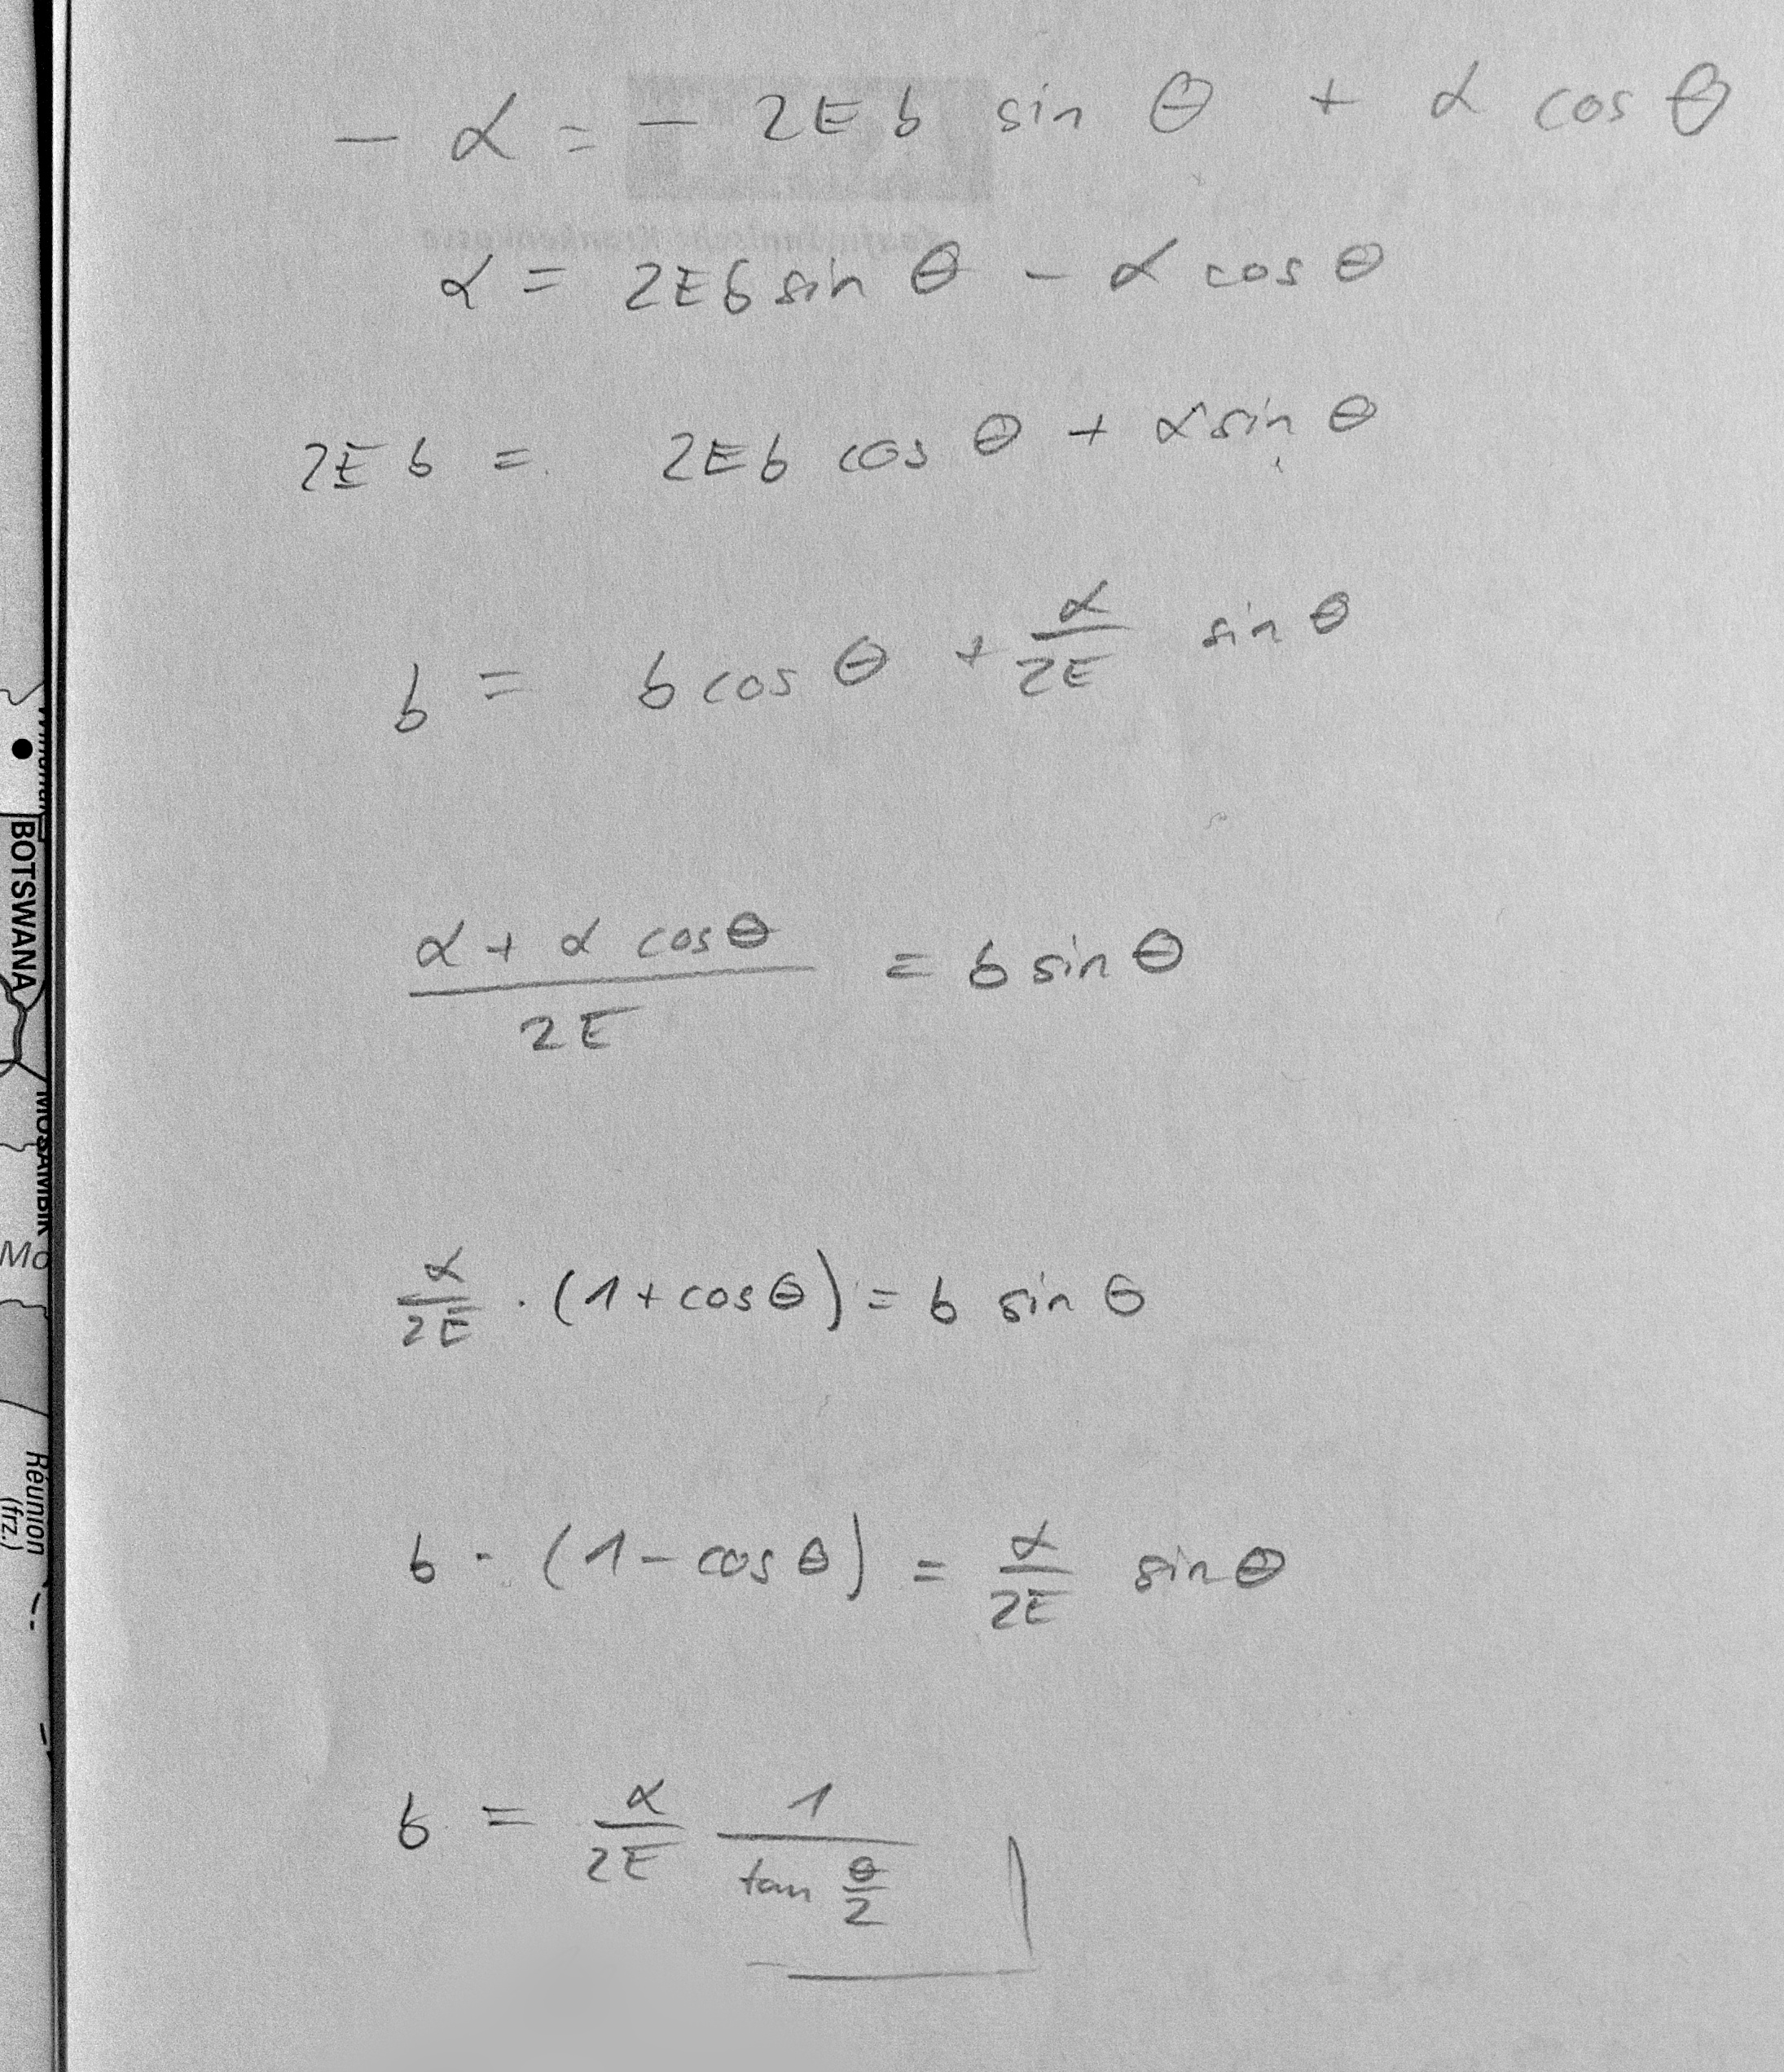 - α = - 2Eb sin θ + α cos θ
α = 2Eb sin θ - α cos θ
2Eb = 2Eb cos θ + α sin θ
b = b cos θ + α/2E sin θ
(α + α cos θ)/2E = b sin θ
α/2E · (1 + cos θ) = b sin θ
b · (1 - cos θ) = α/2E sin θ
b = α/2E 1/(tan θ/2)
BOTSWANA
MOSAMBIK
Mo
Réunion
(frz.)